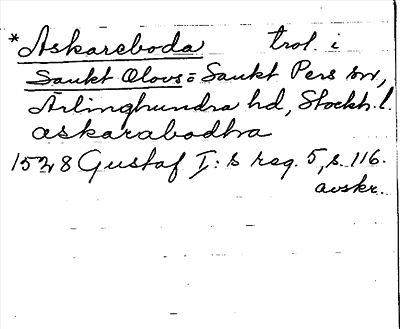 *Askareboda trol. i
Sankt Olovs = Sankt Pers sn,
Ärlinghundra hd, Stockh. l.
askarabodha
1528 Gustaf I:s reg. 5, s. 116.
avskr.